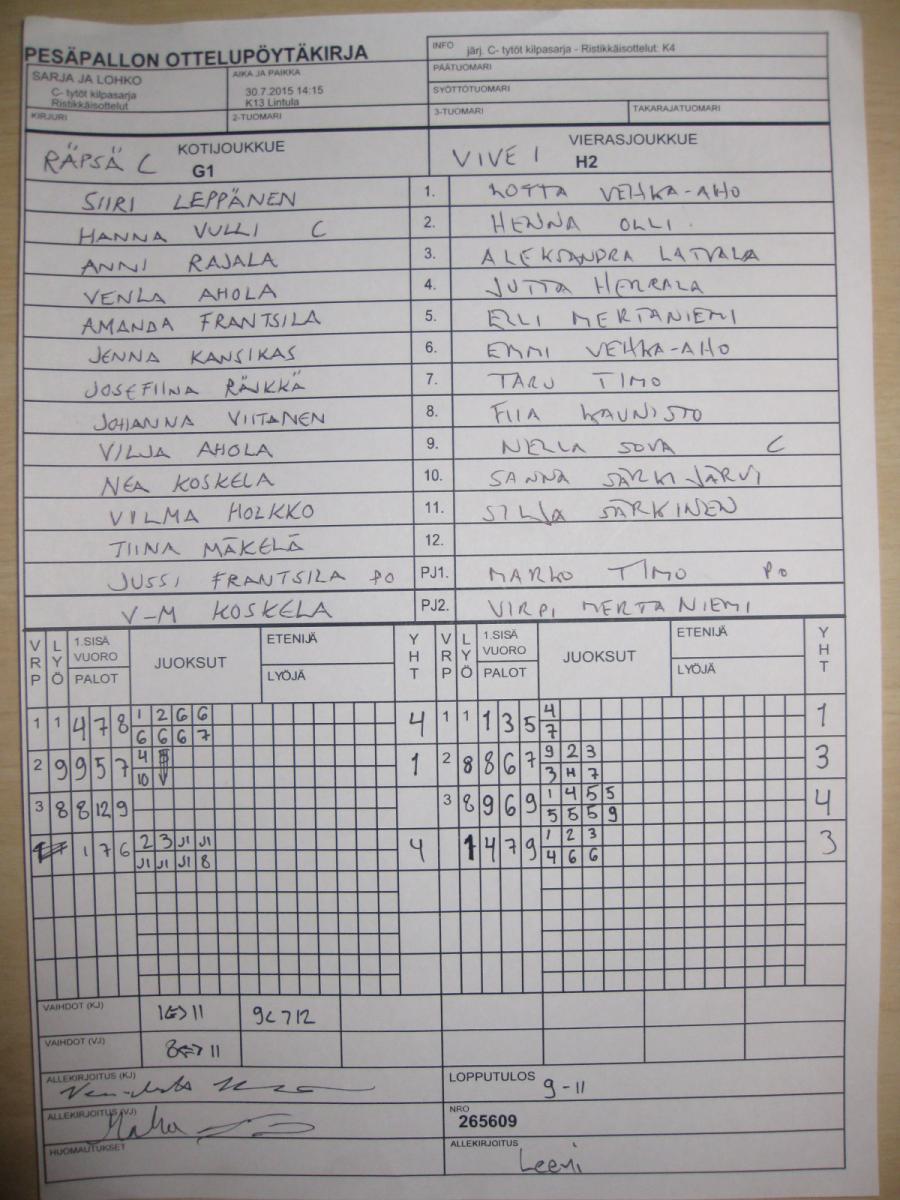 PESÄPALLON OTTELUPÖYTÄKIRJA
INFO järj. C- tytöt kilpasarja - Ristikkäisottelut: K4
SARJA JA LOHKO
C- tytöt kilpasarja
Ristikkäisottelut
AIKA JA PAIKKA
30.7.2015 14:15
K13 Lintula
PÄÄTUOMARI
SYÖTTÖTUOMARI
KIRJURI 2-TUOMARI 3-TUOMARI TAKARAJATUOMARI
RÄPSÄ C KOTIJOUKKUE G1 VIVE 1 VIERASJOUKKUE H2
SIIRI LEPPÄNEN 1. LOTTA VEHKA-AHO
HANNA VULLI C 2. HENNA OLLI
ANNI RAJALA 3. ALEKSANDRA LATVALA
VENLA AHOLA 4. JUTTA HERRALA
AMANDA FRANTSILA 5. ELLI MERTANIEMI
JENNA KANSIKAS 6. EMMI VEHKA-AHO
JOSEFIINA RÄIKKÄ 7. TARU TIMO
JOHANNA VIITANEN 8. FIIA KAUNISTO
VILJA AHOLA 9. NELLA SOVA C
NEA KOSKELA 10. SANNA SÄRKIJÄRVI
VILMA HOLKKO 11. SILJA SÄRKINEN
TIINA MÄKELÄ 12.
JUSSI FRANTSILA PO PJ1. MARKO TIMO PO
V-M KOSKELA PJ2. VIRPI MERTANIEMI
VRP LYÖ 1.SISÄ VUORO PALOT JUOKSUT ETENIJÄ LYÖJÄ YHT VRP LYÖ 1.SISÄ VUORO PALOT JUOKSUT ETENIJÄ LYÖJÄ YHT
1 1 4 7 8 1 2 6 6 4 1 1 1 3 5 4 1
6 6 6 7 7
2 9 9 5 7 4 1 2 8 8 6 7 9 2 3 3
10 3 4 7
3 8 8 12 9 3 8 9 6 9 1 4 5 5 4
5 5 5 9
1 7 6 2 3 11 11 4 1 4 7 9 1 2 3 3
11 11 11 8 4 6 6
VAIHDOT (KJ) 1<=>11 9<>12
VAIHDOT (VJ) 8<=>11
ALLEKIRJOITUS (KJ) LOPPUTULOS 9-11
ALLEKIRJOITUS (VJ) NRO 265609
HUOMAUTUKSET ALLEKIRJOITUS Leevi